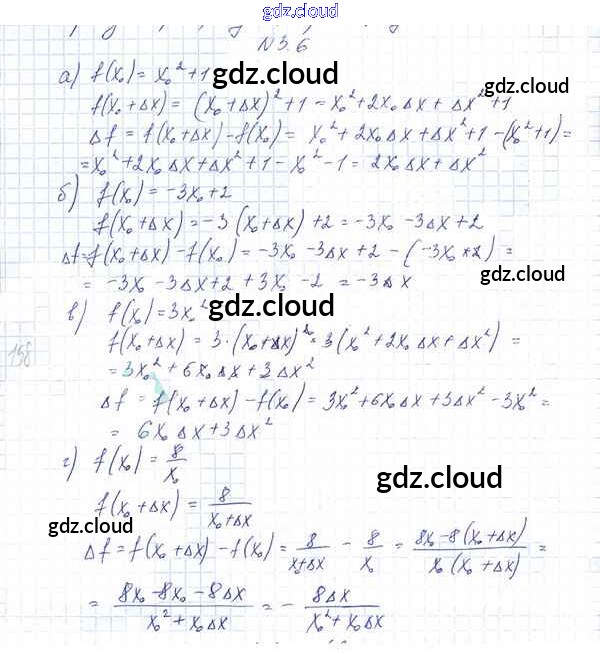 gdz.cloud
N 3.6
а) f(x₀) = x₀² + 1 gdz.cloud
f(x₀ + Δx) = (x₀ + Δx)² + 1 = x₀² + 2x₀Δx + Δx² + 1
Δf = f(x₀ + Δx) - f(x₀) = x₀² + 2x₀Δx + Δx² + 1 - (x₀² + 1) =
= x₀² + 2x₀Δx + Δx² + 1 - x₀² - 1 = 2x₀Δx + Δx²
б) f(x₀) = -3x₀ + 2
f(x₀ + Δx) = -3(x₀ + Δx) + 2 = -3x₀ - 3Δx + 2
Δf = f(x₀ + Δx) - f(x₀) = -3x₀ - 3Δx + 2 - (-3x₀ + 2) =
= -3x₀ - 3Δx + 2 + 3x₀ - 2 = -3Δx
в) f(x₀) = 3x₀² gdz.cloud
f(x₀ + Δx) = 3·(x₀ + Δx)² = 3(x₀² + 2x₀Δx + Δx²) =
158
= 3x₀² + 6x₀Δx + 3Δx² gdz.cloud
Δf = f(x₀ + Δx) - f(x₀) = 3x₀² + 6x₀Δx + 3Δx² - 3x₀² =
= 6x₀Δx + 3Δx²
г) f(x₀) = 8/x₀ gdz.cloud
f(x₀ + Δx) = 8/(x₀ + Δx)
gdz.cloud
Δf = f(x₀ + Δx) - f(x₀) = 8/(x + Δx) - 8/x₀ = (8x₀ - 8(x₀ + Δx))/(x₀(x₀ + Δx)) =
= (8x₀ - 8x₀ - 8Δx)/(x₀² + x₀Δx) = - 8Δx/(x₀² + x₀Δx)